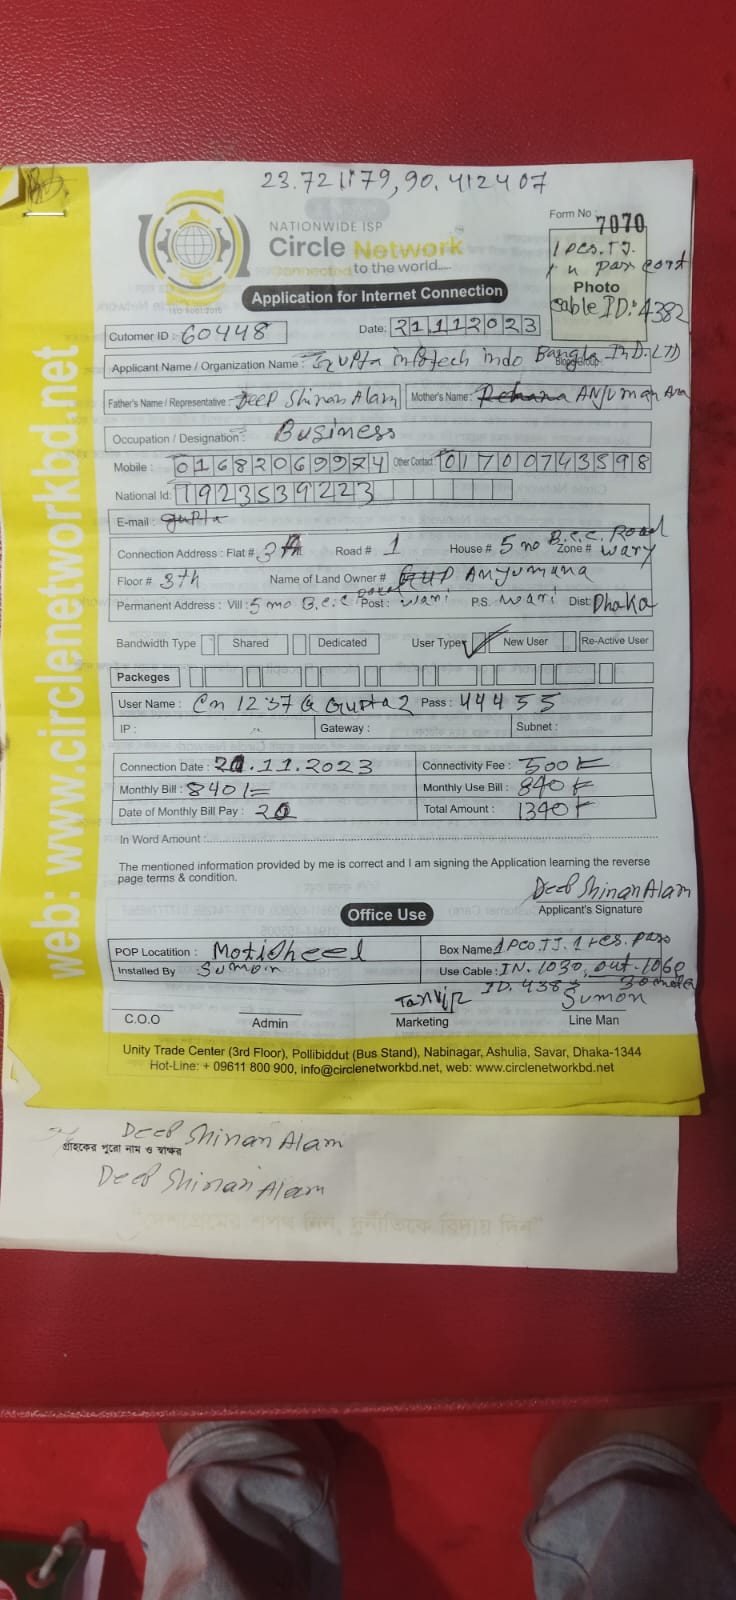 23.721179, 90.412407
NATIONWIDE ISP
Circle Network
Connected to the world....
ISO 9001:2015
Form No : 7070
1 pcs. TJ.
Photo
Cable ID: 4382
Application for Internet Connection
Cutomer ID : 60448 Date: 21112023
Applicant Name / Organization Name : Gupta infotech indo Bangla IND. LTD
Father's Name / Representative : Deep Shinan Alam Mother's Name : Anjuman Ara
Occupation / Designation : Business
Mobile : 01682069974 Other Contact : 01700743598
National Id: 1923539223
E-mail : gupta
Connection Address : Flat # 3th Road # 1 House # 5 no B.C.C. Road Zone # wary
Floor # 3th Name of Land Owner # Anjumana
Permanent Address : Vill : 5 no B.C.C Road Post : wari P.S. wari Dist: Dhaka
Bandwidth Type Shared Dedicated User Type New User Re-Active User
Packeges
User Name : Cn 1237 @ Gupta2 Pass : 44455
IP : Gateway : Subnet :
Connection Date : 21.11.2023 Connectivity Fee : 500
Monthly Bill : 840/= Monthly Use Bill : 840
Date of Monthly Bill Pay : 20 Total Amount : 1340
In Word Amount :
The mentioned information provided by me is correct and I am signing the Application learning the reverse
page terms & condition.
Deep Shinan Alam
Applicant's Signature
Office Use
POP Locatition : Motijheel Box Name : 1 PCO. TJ. 1 Pcs.
Installed By Sumon Use Cable : IN. 1030, out. 1060
ID. 4382
Tanvir Sumon
C.O.O Admin Marketing Line Man
Unity Trade Center (3rd Floor), Pollibiddut (Bus Stand), Nabinagar, Ashulia, Savar, Dhaka-1344
Hot-Line: + 09611 800 900, info@circlenetworkbd.net, web: www.circlenetworkbd.net
web: www.circlenetworkbd.net
Deep Shinan Alam
গ্রাহকের পুরো নাম ও স্বাক্ষর
Deep Shinan Alam
"দেশপ্রেমের শপথ নিন, দুর্নীতিকে বিদায় দিন"